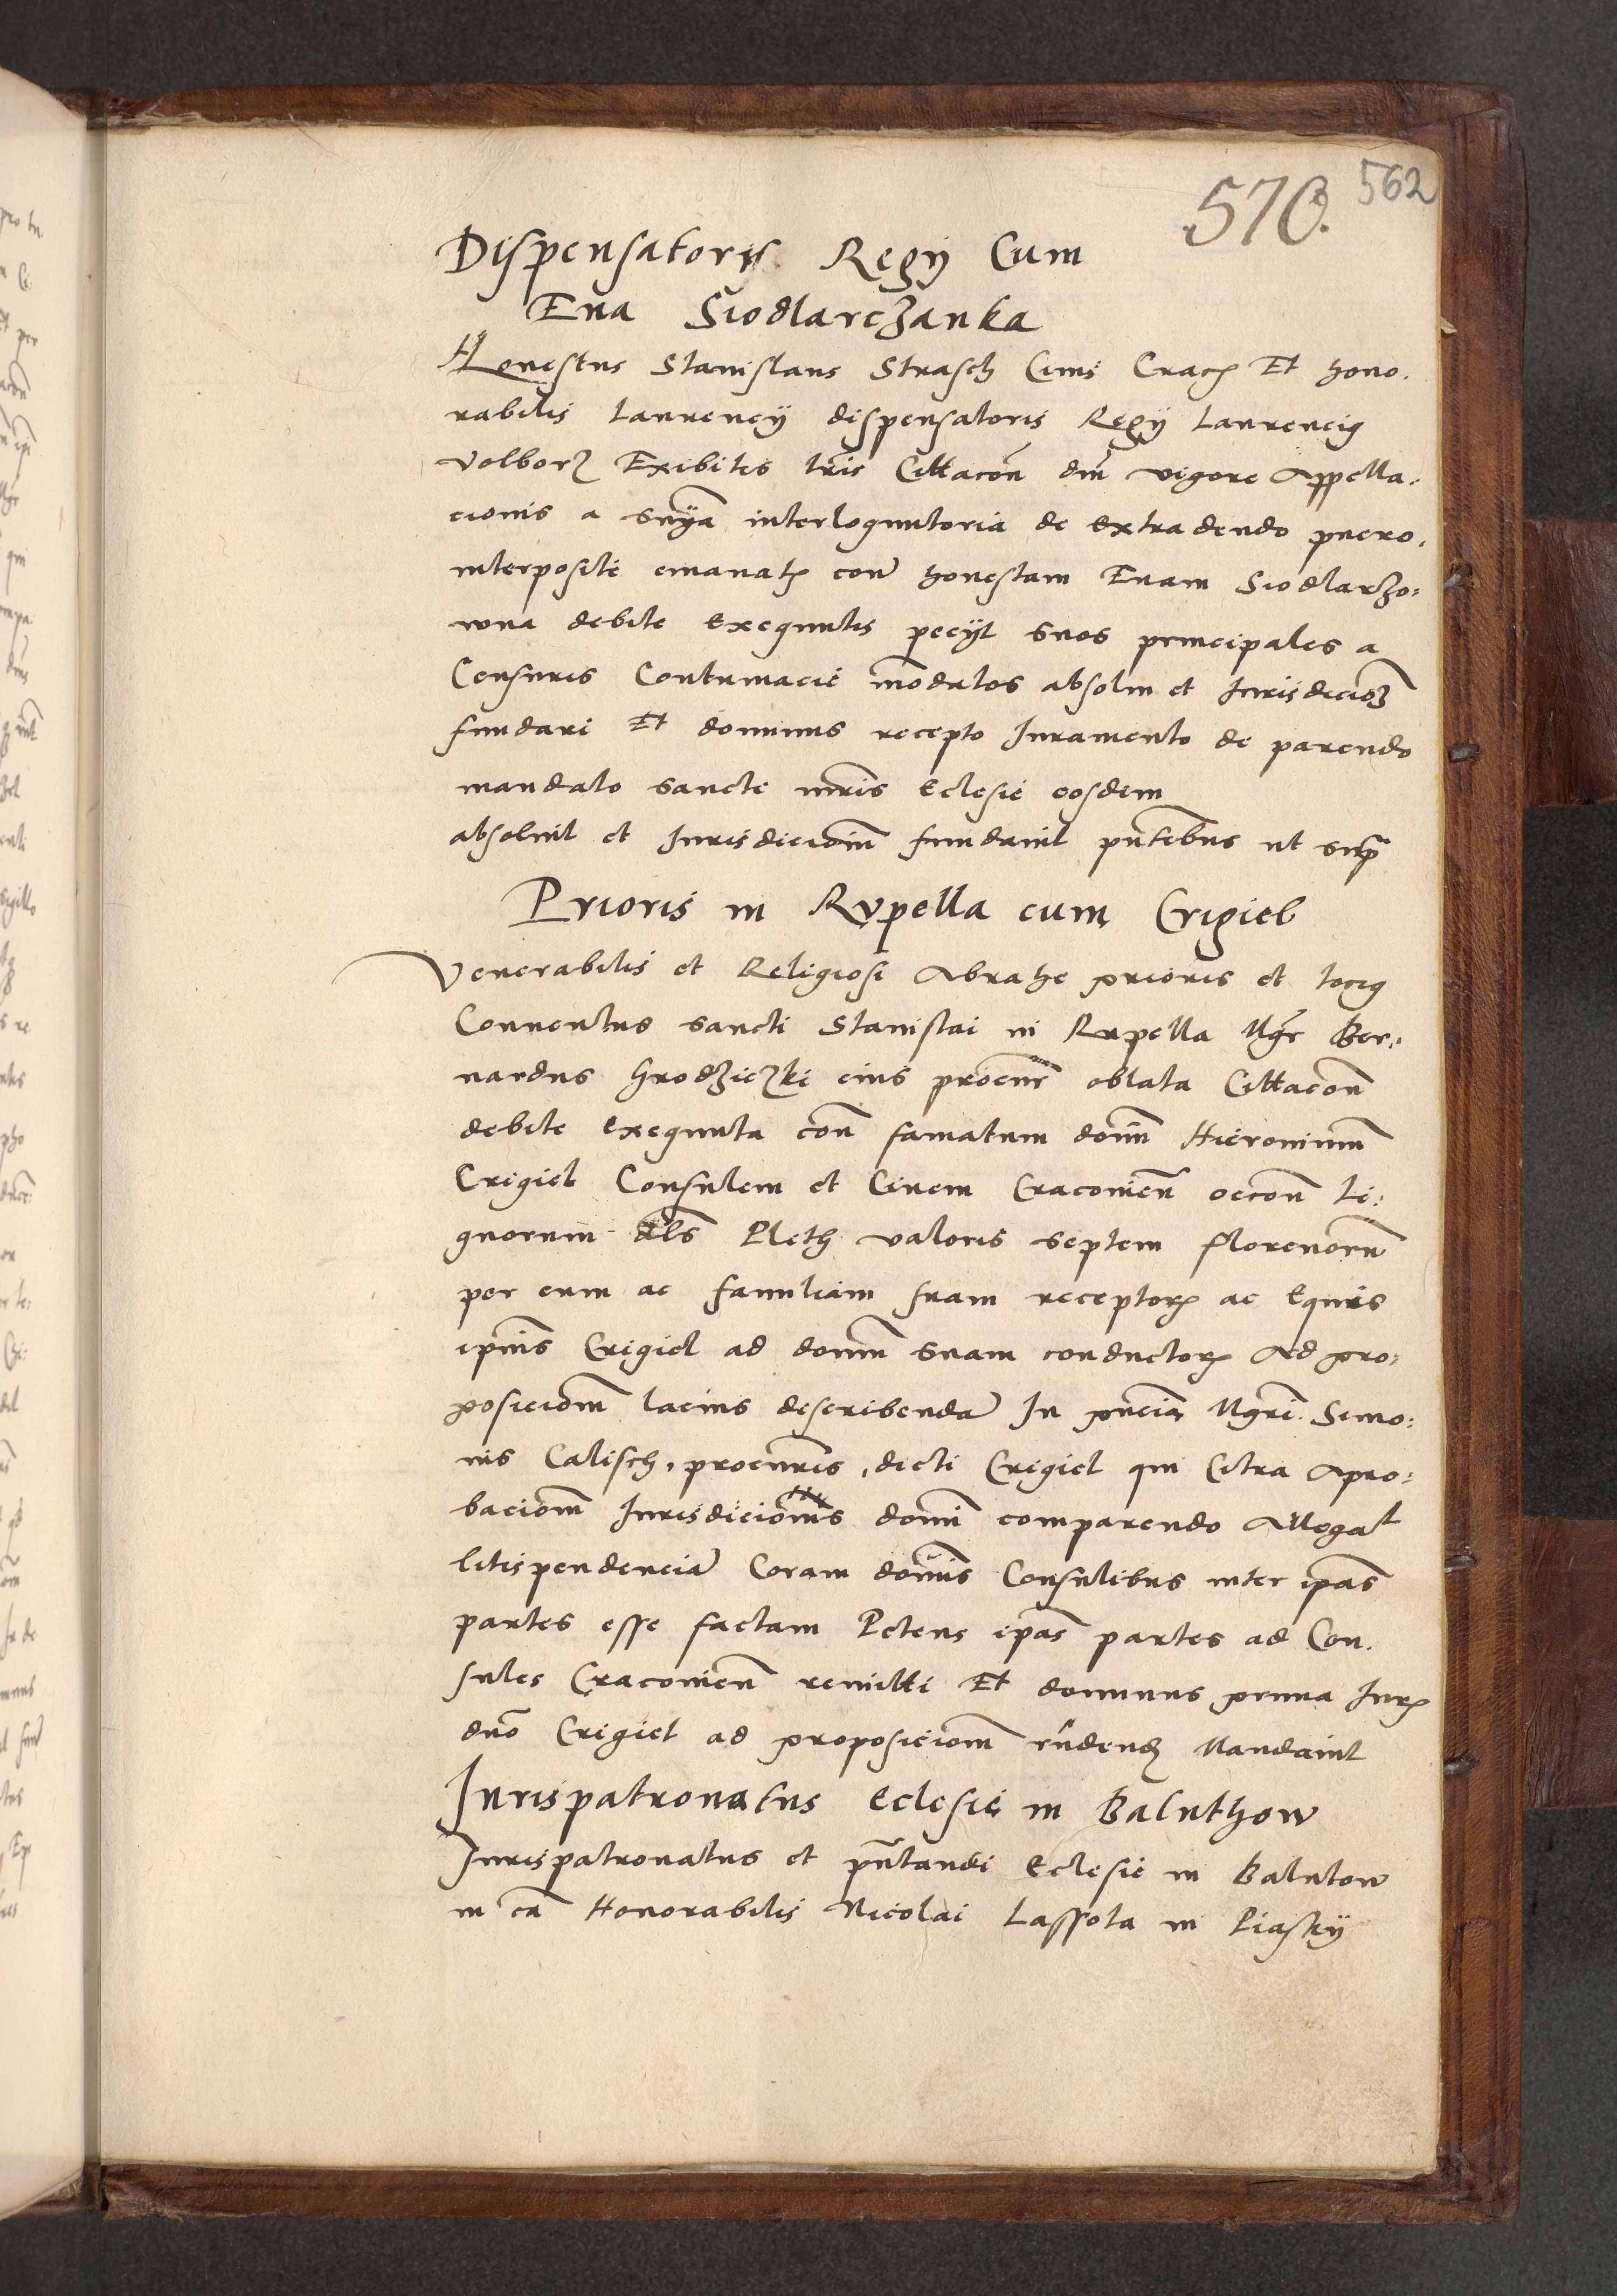 570. 562
Dispensatoris Regij Cum
Eua Siodlarczanka
Honestus Stanislaus Strasch Ciuis Crac Et hono.
rabilis Laurencij dispensatoris Regij Laurencig
volborz Exibitis lrĩs Cittacoñ dnĩ vigore Appella.
cionis a snÿa interloqnutoria de extradendo puero.
interposite emanatͬ con̄ honestam Euam Siodlarzo:
wna debite exequutis pecÿt suos principales a
Censuris Contumacie mõdatos absolui et Jurisdiciõȝ
fundari Et dominus recepto Juramento de parendo
mandato sancte mrĩs Eclesie eosdem
absoluit et Jurisdicionẽm fundauit pñtebus ut sup̃
Prioris in Rvpella cum Crigiel
Venerabilis et Religiosi Abrahe prioris et tocig
Conuentus sancti Stanislai in Rupella Mgr̃ Ber.
nardus Hrodziczki eius procur̃ oblata Cittacoñ
debite exequuta coñ famatum domĩ Hieronimũ
Crigiel Consulem et Ciuem Cracouieñ occoñ Li:
gnorum als̃ Pleth valoris septem florenorũ
per eum ac familiam suam receptorͬ ac Equis
ipius̃ Crigiel ad domũ suam conductorͬ Ad pro:
posiciom̃ lacius describendã In pñcia Mgrĩ Simo:
nis Calisch, procurr̃is, dicti Crigiel qui Citra apro:
baciom̃ Jurisdicionĩs domĩ comparendo Allegat
litispendenciã Coram domĩs Consulibus inter ipas̃
partes esse factam Petens ipas̃ partes ad Con.
sules Cracouieñ remitti Et dominus prima Jurͬ
dnõ Crigiel ad proposiciom̃ rñdendȝ Mandauit
Jurispatronatus Eclesie in Baluthow
Jurispatronatus et pñtandi Eclesie in Balutow
in cã Honorabilis Nicolai Lassota in Piaskÿ